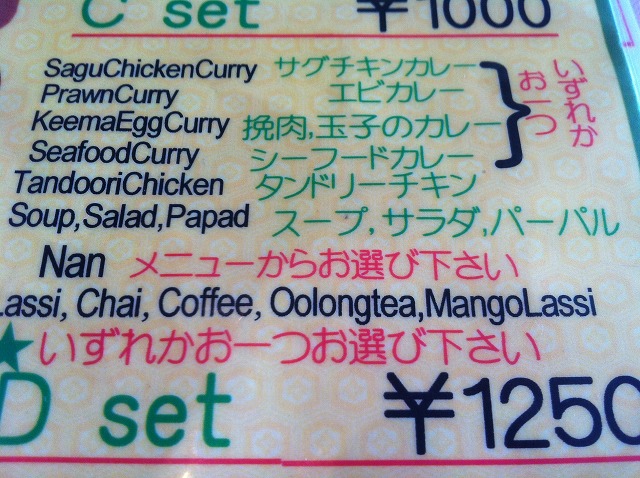 C set ¥1000
SaguChickenCurry サグチキンカレー
PrawnCurry エビカレー
KeemaEggCurry 挽肉,玉子のカレー
SeafoodCurry シーフードカレー
いずれか
お一つ
TandooriChicken タンドリーチキン
Soup,Salad,Papad スープ,サラダ,パーパル
Nan メニューからお選び下さい
Lassi, Chai, Coffee, Oolongtea,MangoLassi
★いずれかお一つお選び下さい
D set ¥1250